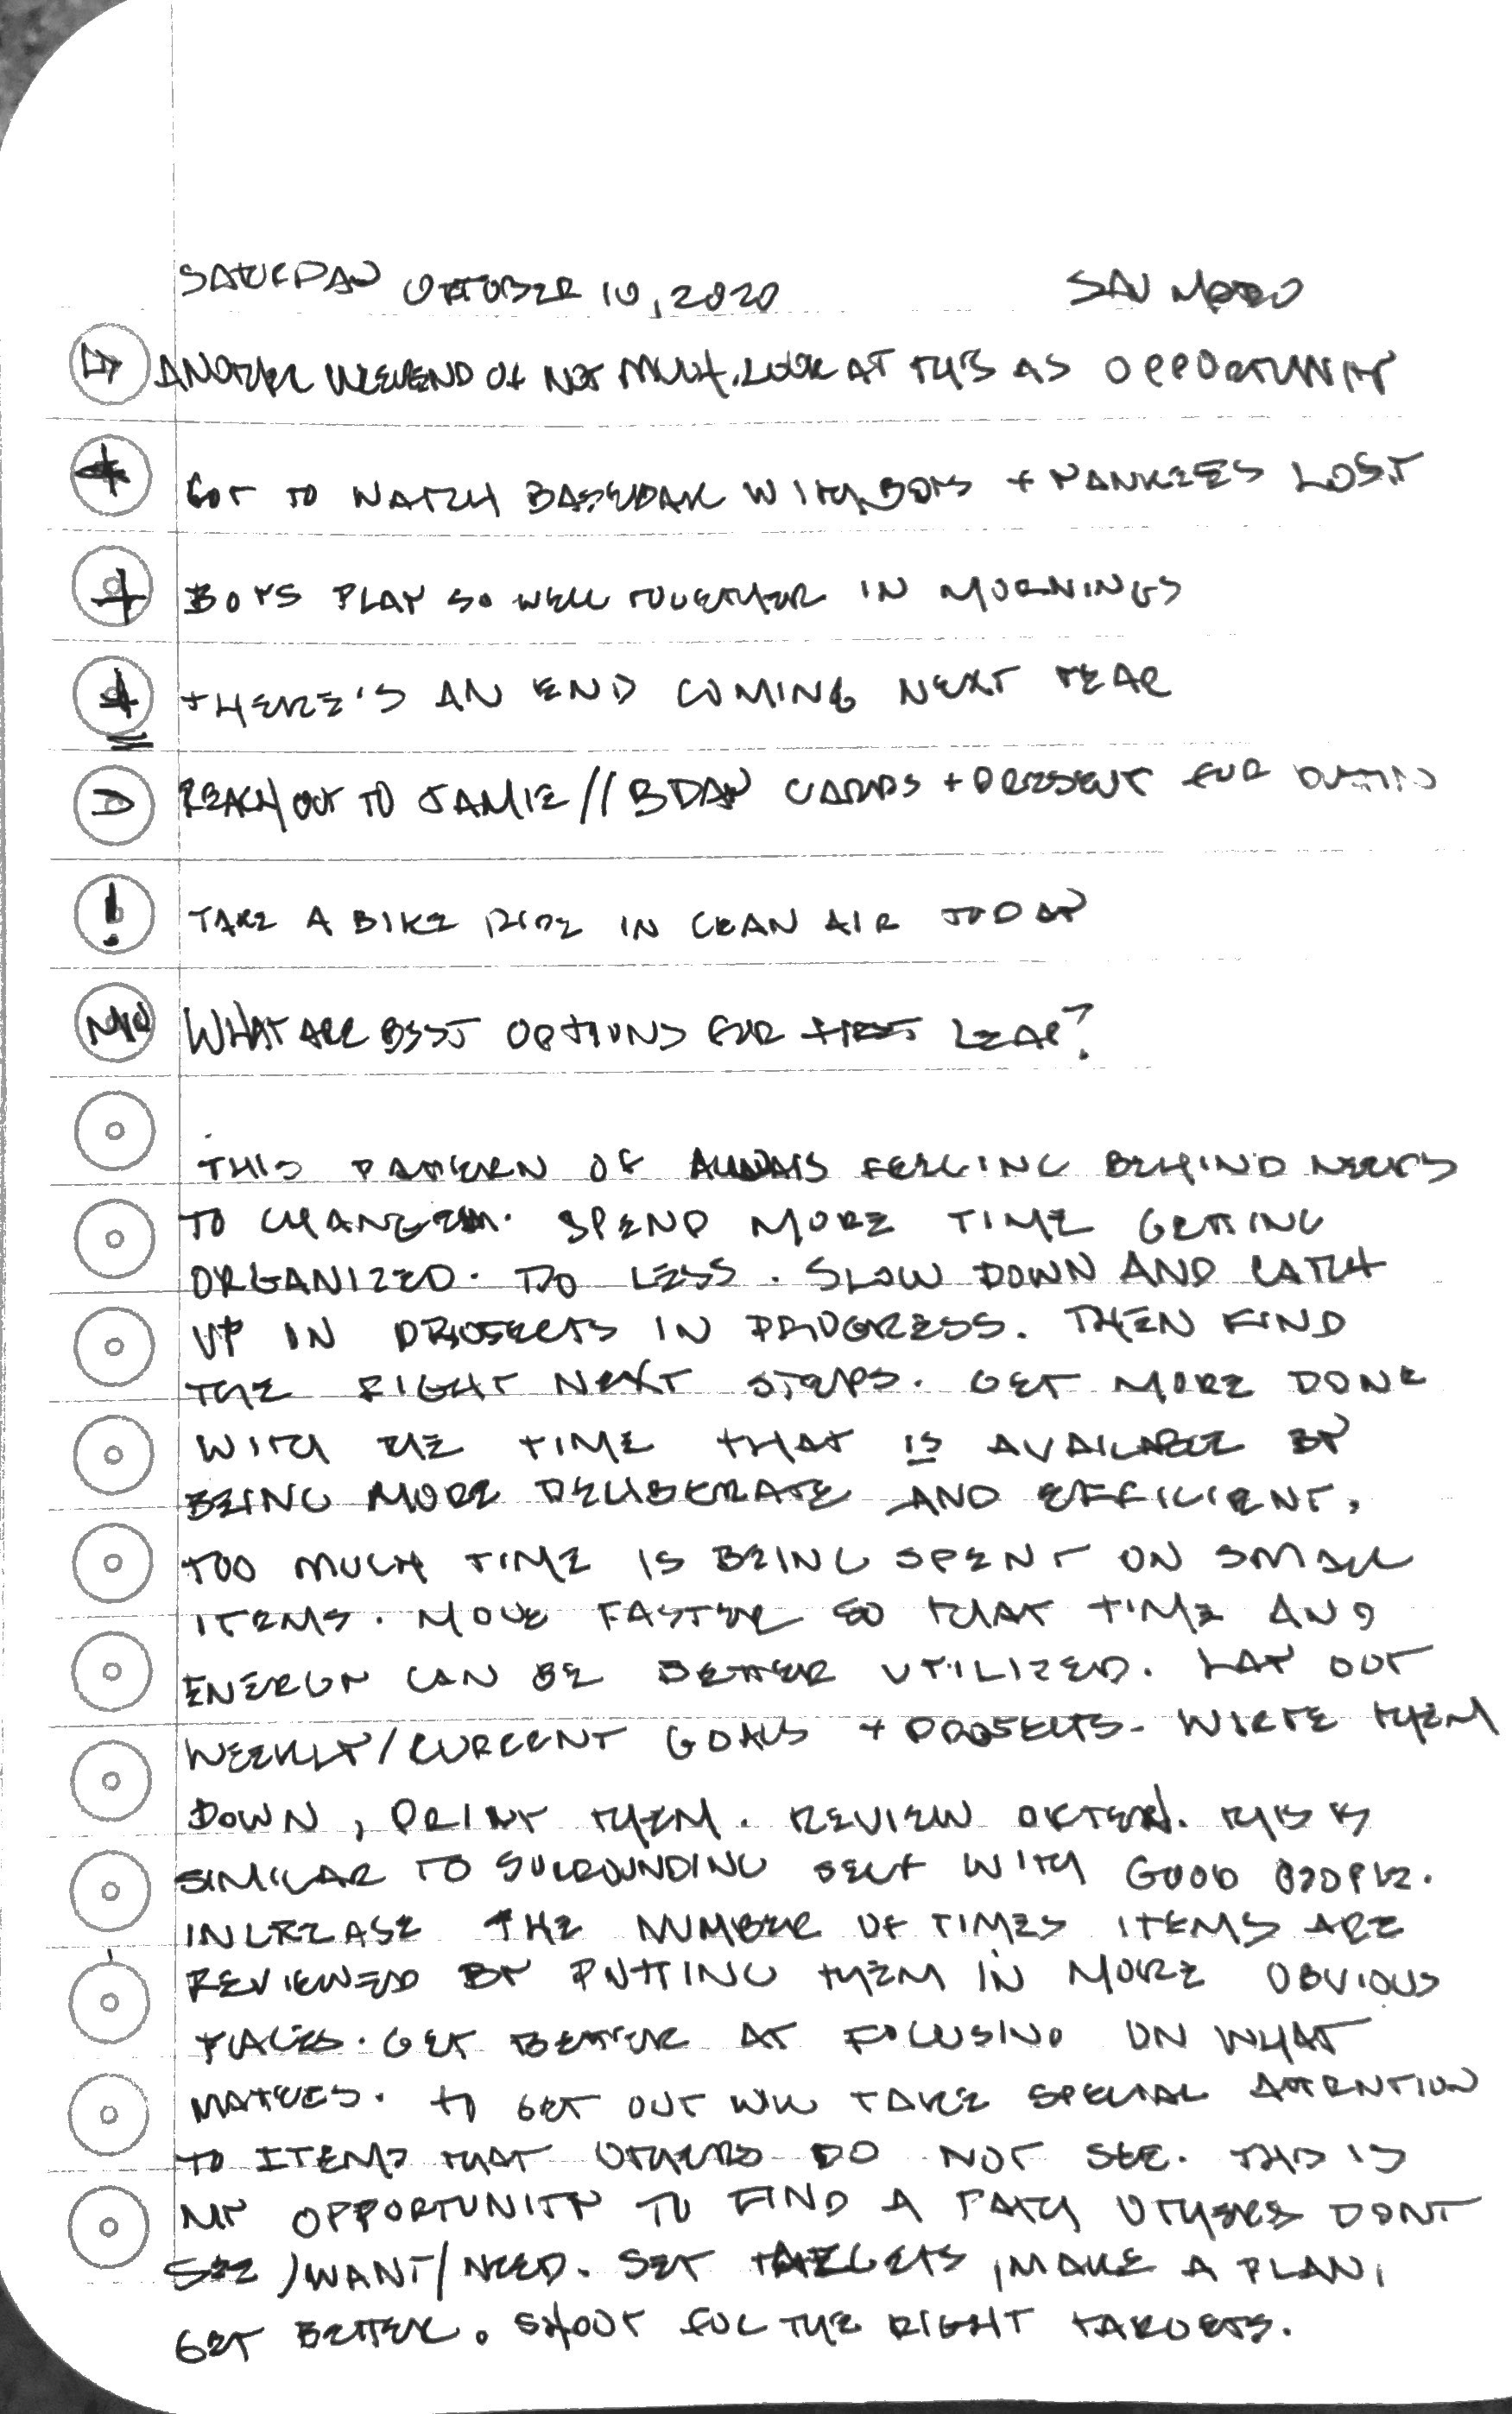 SATURDAY OCTOBER 10, 2020 SAN MATEO
ANOTHER WEEKEND OF NOT MUCH. LOOK AT THIS AS OPPORTUNITY
+ GOT TO WATCH BASEBALL WITH BOYS + YANKEES LOST
+ BOYS PLAY SO WELL TOGETHER IN MORNINGS
+ THERE'S AN END COMING NEXT YEAR
D REACH OUT TO JAMIE // BDAY CARDS + PRESENT FOR
! TAKE A BIKE RIDE IN CLEAN AIR TODAY
WHAT ARE BEST OPTIONS FOR FIRST LEAP?
THIS PATTERN OF ALWAYS FEELING BEHIND NEEDS
TO CHANGE. SPEND MORE TIME GETTING
ORGANIZED. DO LESS. SLOW DOWN AND CATCH
UP IN PROJECTS IN PROGRESS. THEN FIND
THE RIGHT NEXT STEPS. GET MORE DONE
WITH THE TIME THAT IS AVAILABLE BY
BEING MORE DELIBERATE AND EFFICIENT.
TOO MUCH TIME IS BEING SPENT ON SMALL
ITEMS. MOVE FASTER SO THAT TIME AND
ENERGY CAN BE BETTER UTILIZED. LAY OUT
WEEKLY/CURRENT GOALS + PROJECTS. WRITE THEM
DOWN, PRINT THEM. REVIEW OFTEN. THIS IS
SIMILAR TO SURROUNDING SELF WITH GOOD PEOPLE.
INCREASE THE NUMBER OF TIMES ITEMS ARE
REVIEWED BY PUTTING THEM IN MORE OBVIOUS
PLACES. GET BETTER AT FOCUSING ON WHAT
MATTERS. TO GET OUT WILL TAKE SPECIAL ATTENTION
TO ITEMS THAT OTHERS DO NOT SEE. THIS IS
MY OPPORTUNITY TO FIND A PATH OTHERS DONT
SEE/WANT/NEED. SET TARGETS, MAKE A PLAN,
GET BETTER. SHOOT FOR THE RIGHT TARGETS.